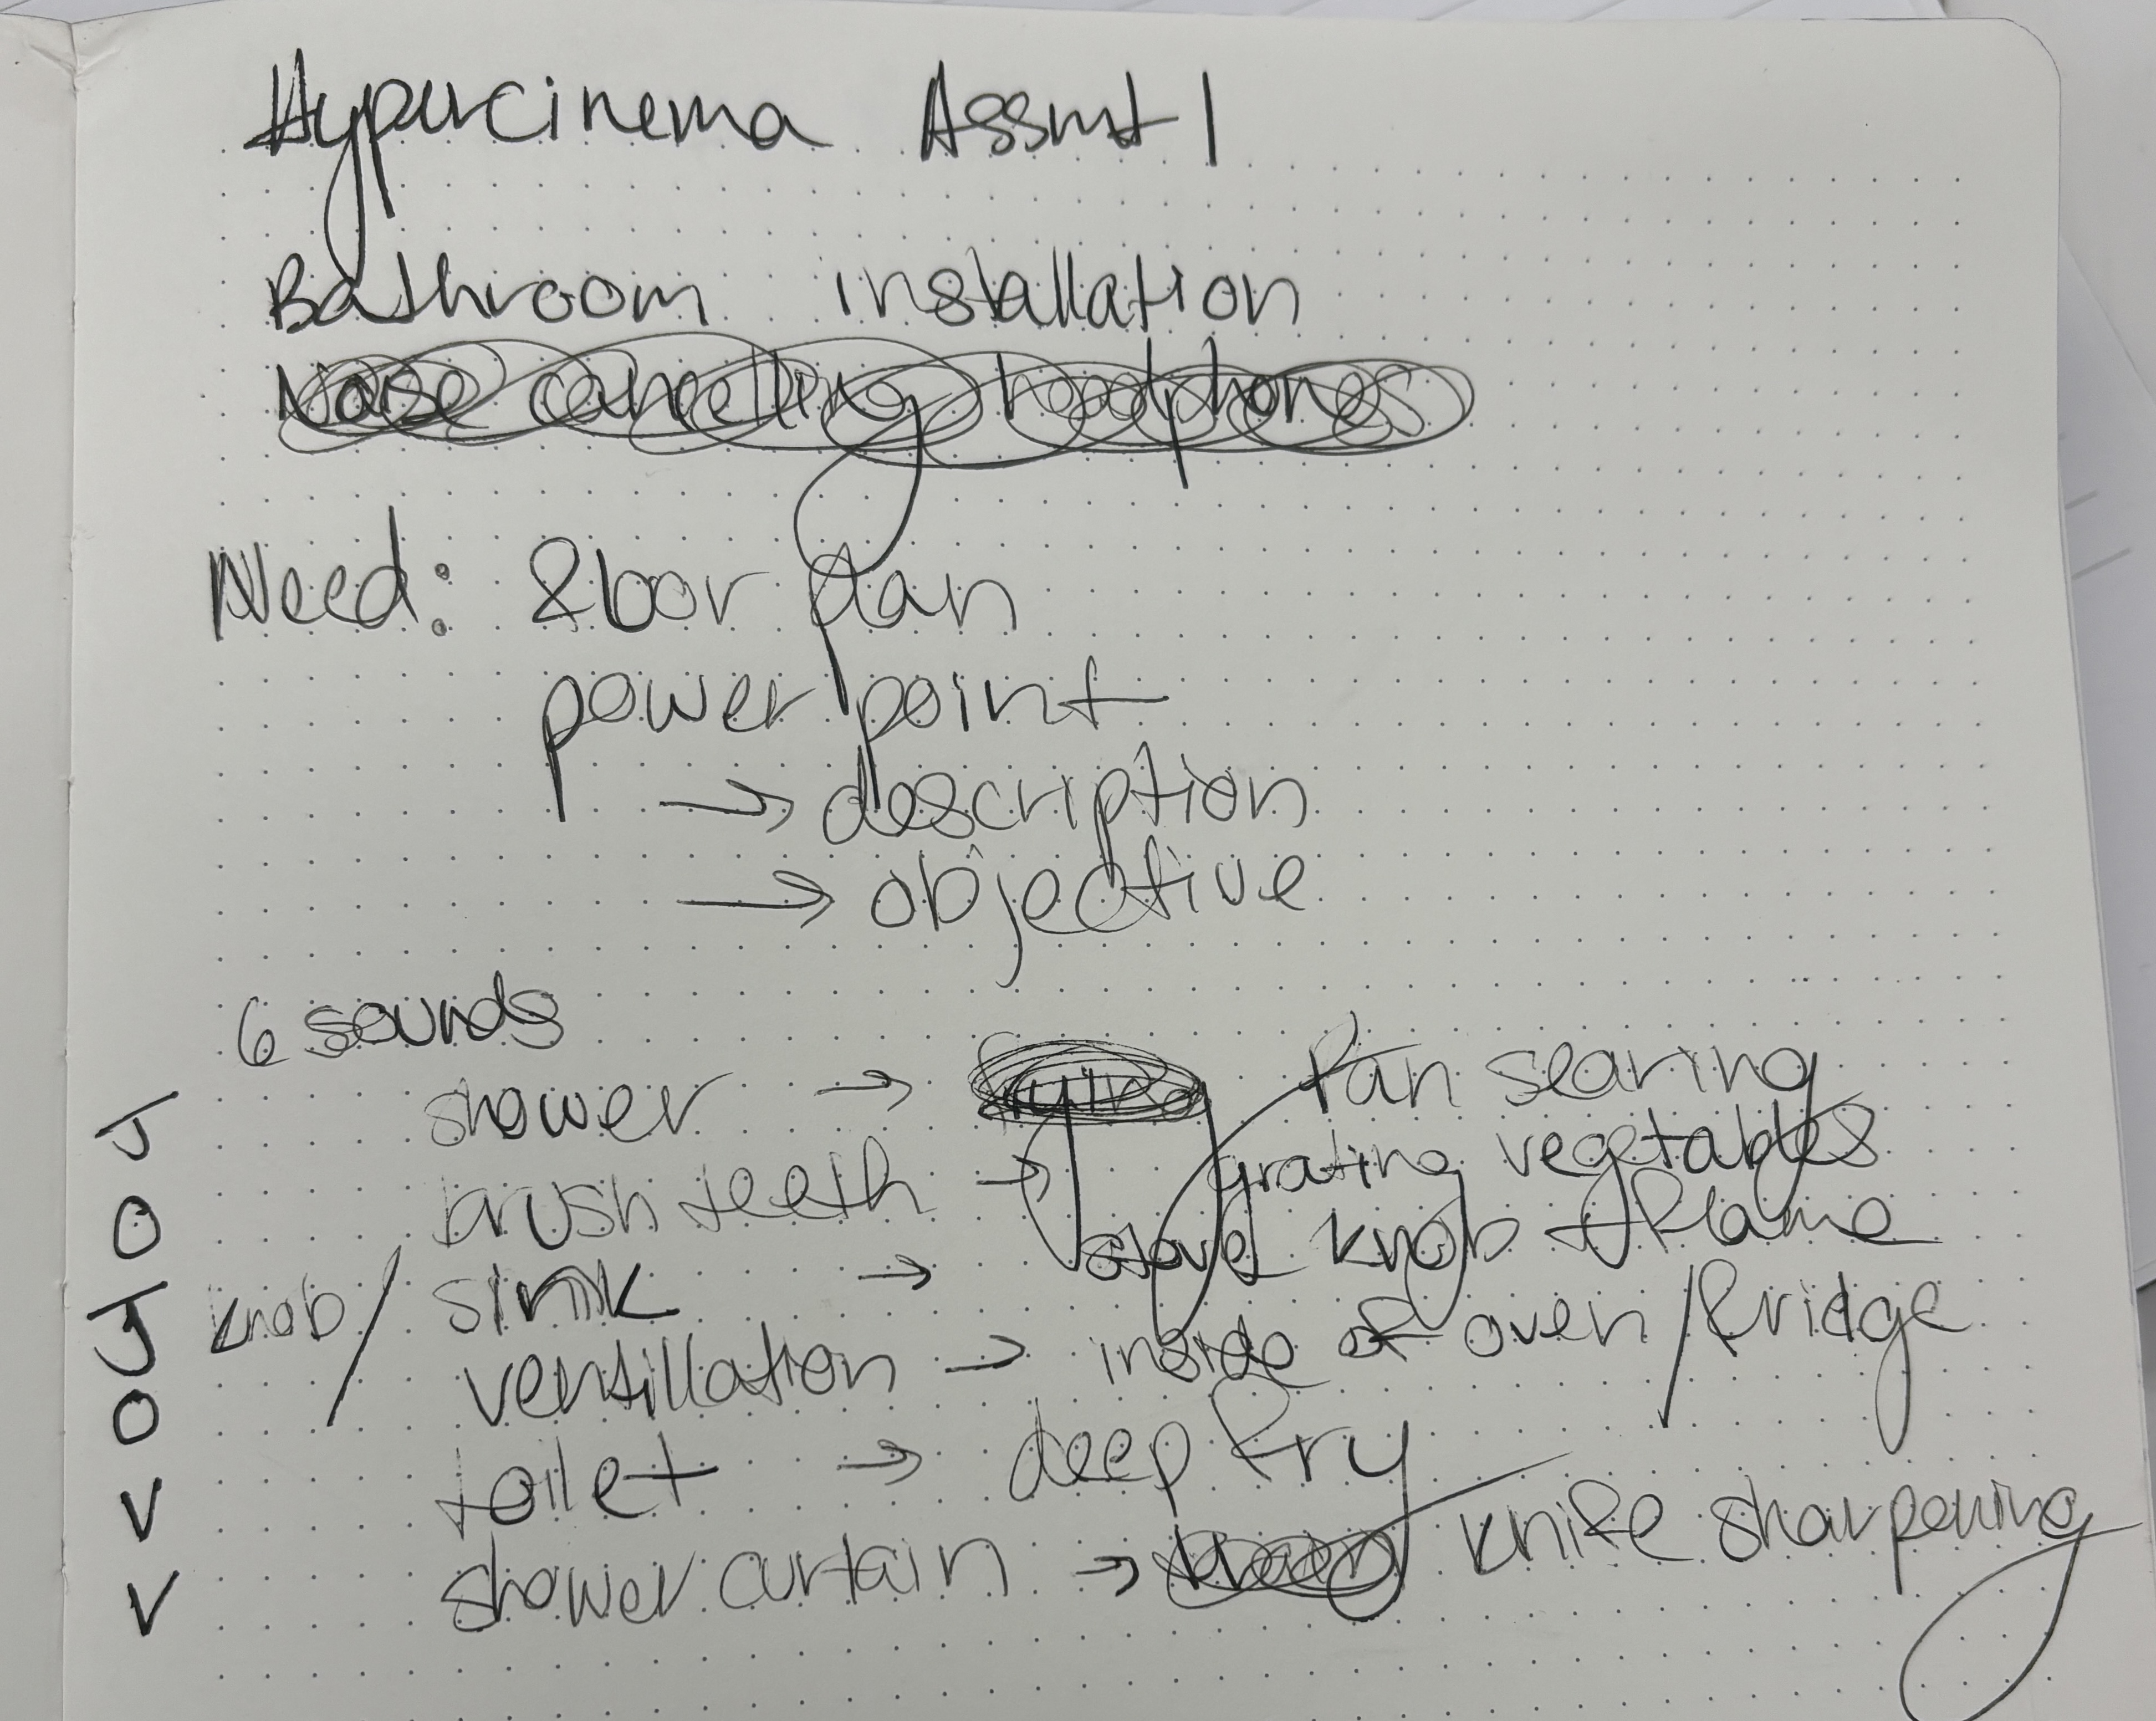 Hypercinema Assmt 1
Bathroom installation
Noise cancelling headphones
Need: floor plan
power point
→ description
→ objective
6 sounds
J shower → frying Pan searing
O brush teeth → grating vegetables
J knob/ sink → stove knob + flame
O ventillation → inside of oven/fridge
V toilet → deep fry
V shower curtain → knife sharpening